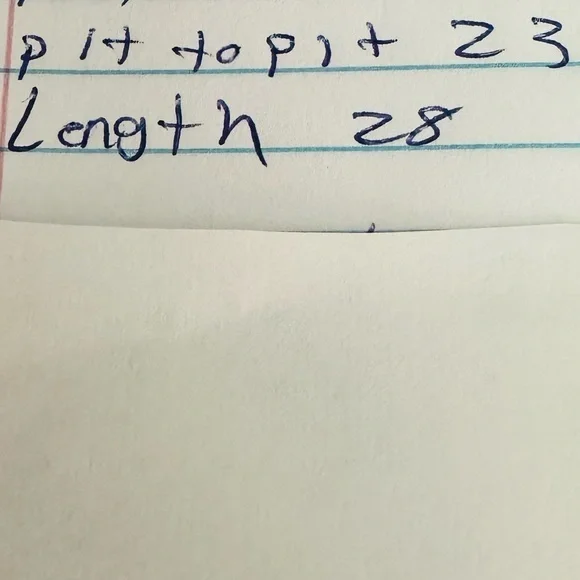 pit to pit 23
Length 28